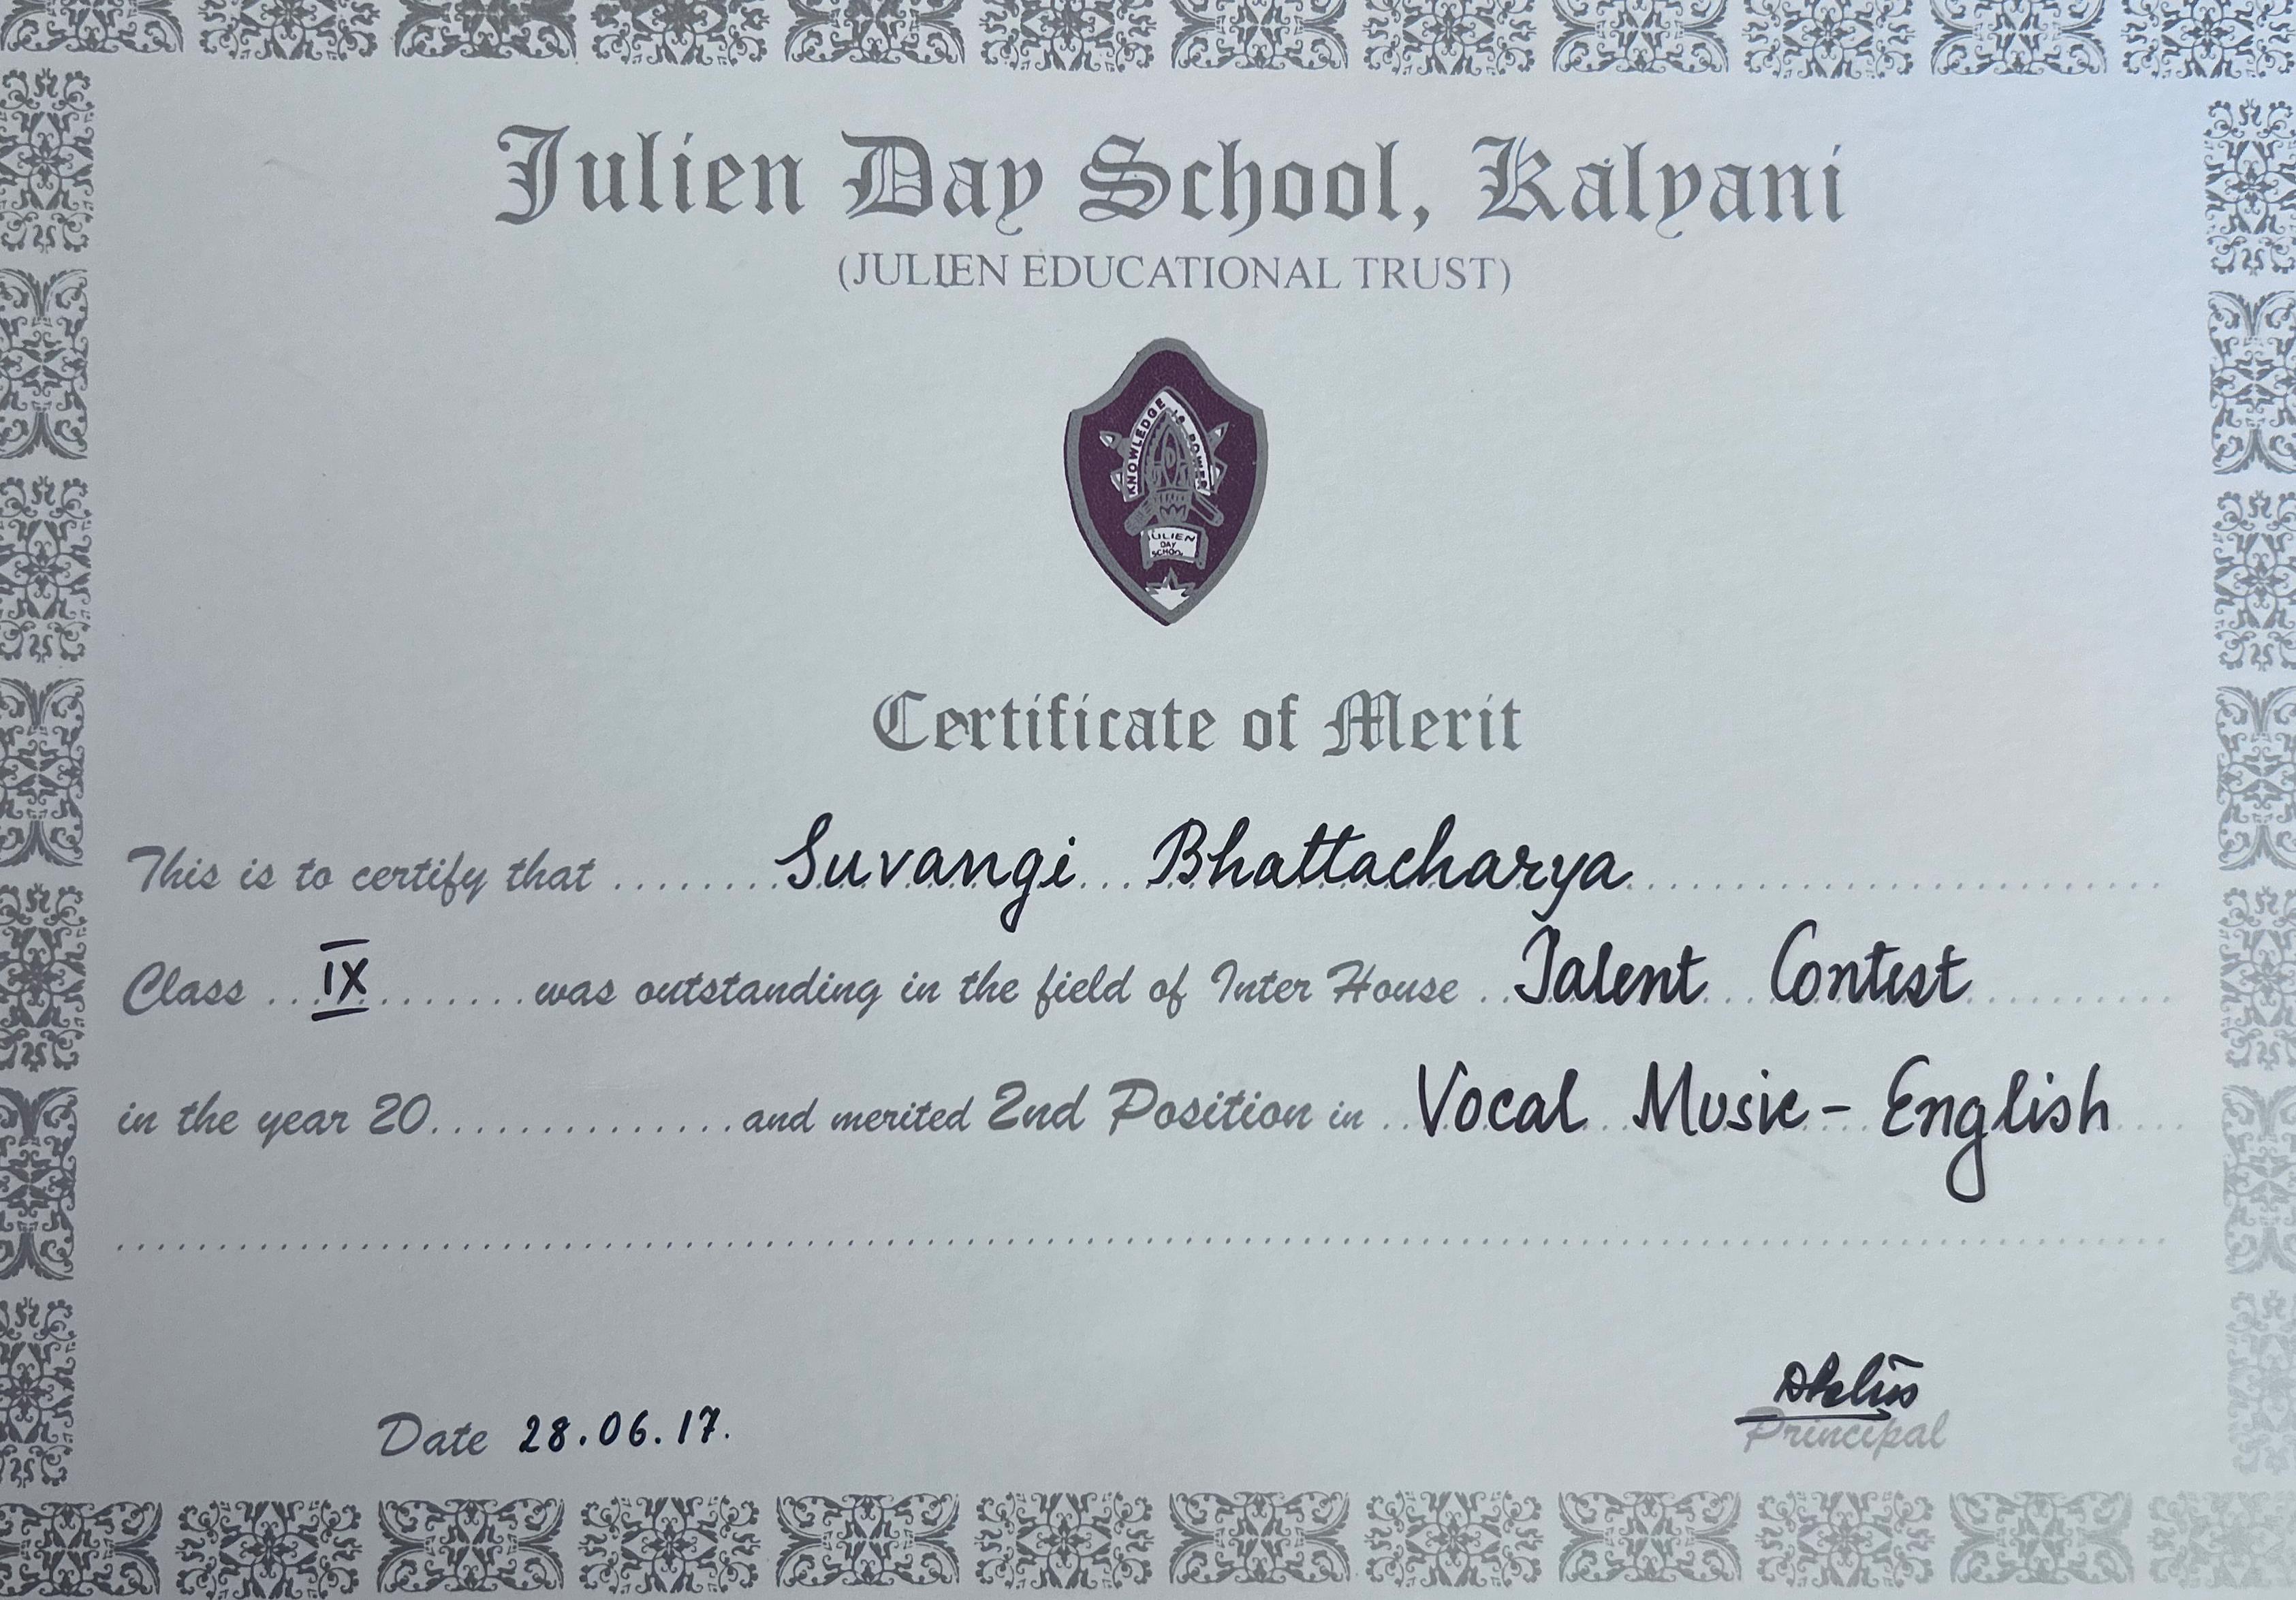 Julien Day School, Kalyani
(JULIEN EDUCATIONAL TRUST)
KNOWLEDGE IS POWER
JULIEN
DAY
SCHOOL
Certificate of Merit
This is to certify that ....... Suvangi Bhattacharya ....................
Class ... IX ........ was outstanding in the field of Inter House .. Talent Contest ..........
in the year 20............... and merited 2nd Position in .. Vocal Music - English ....
Date 28.06.17.
Principal